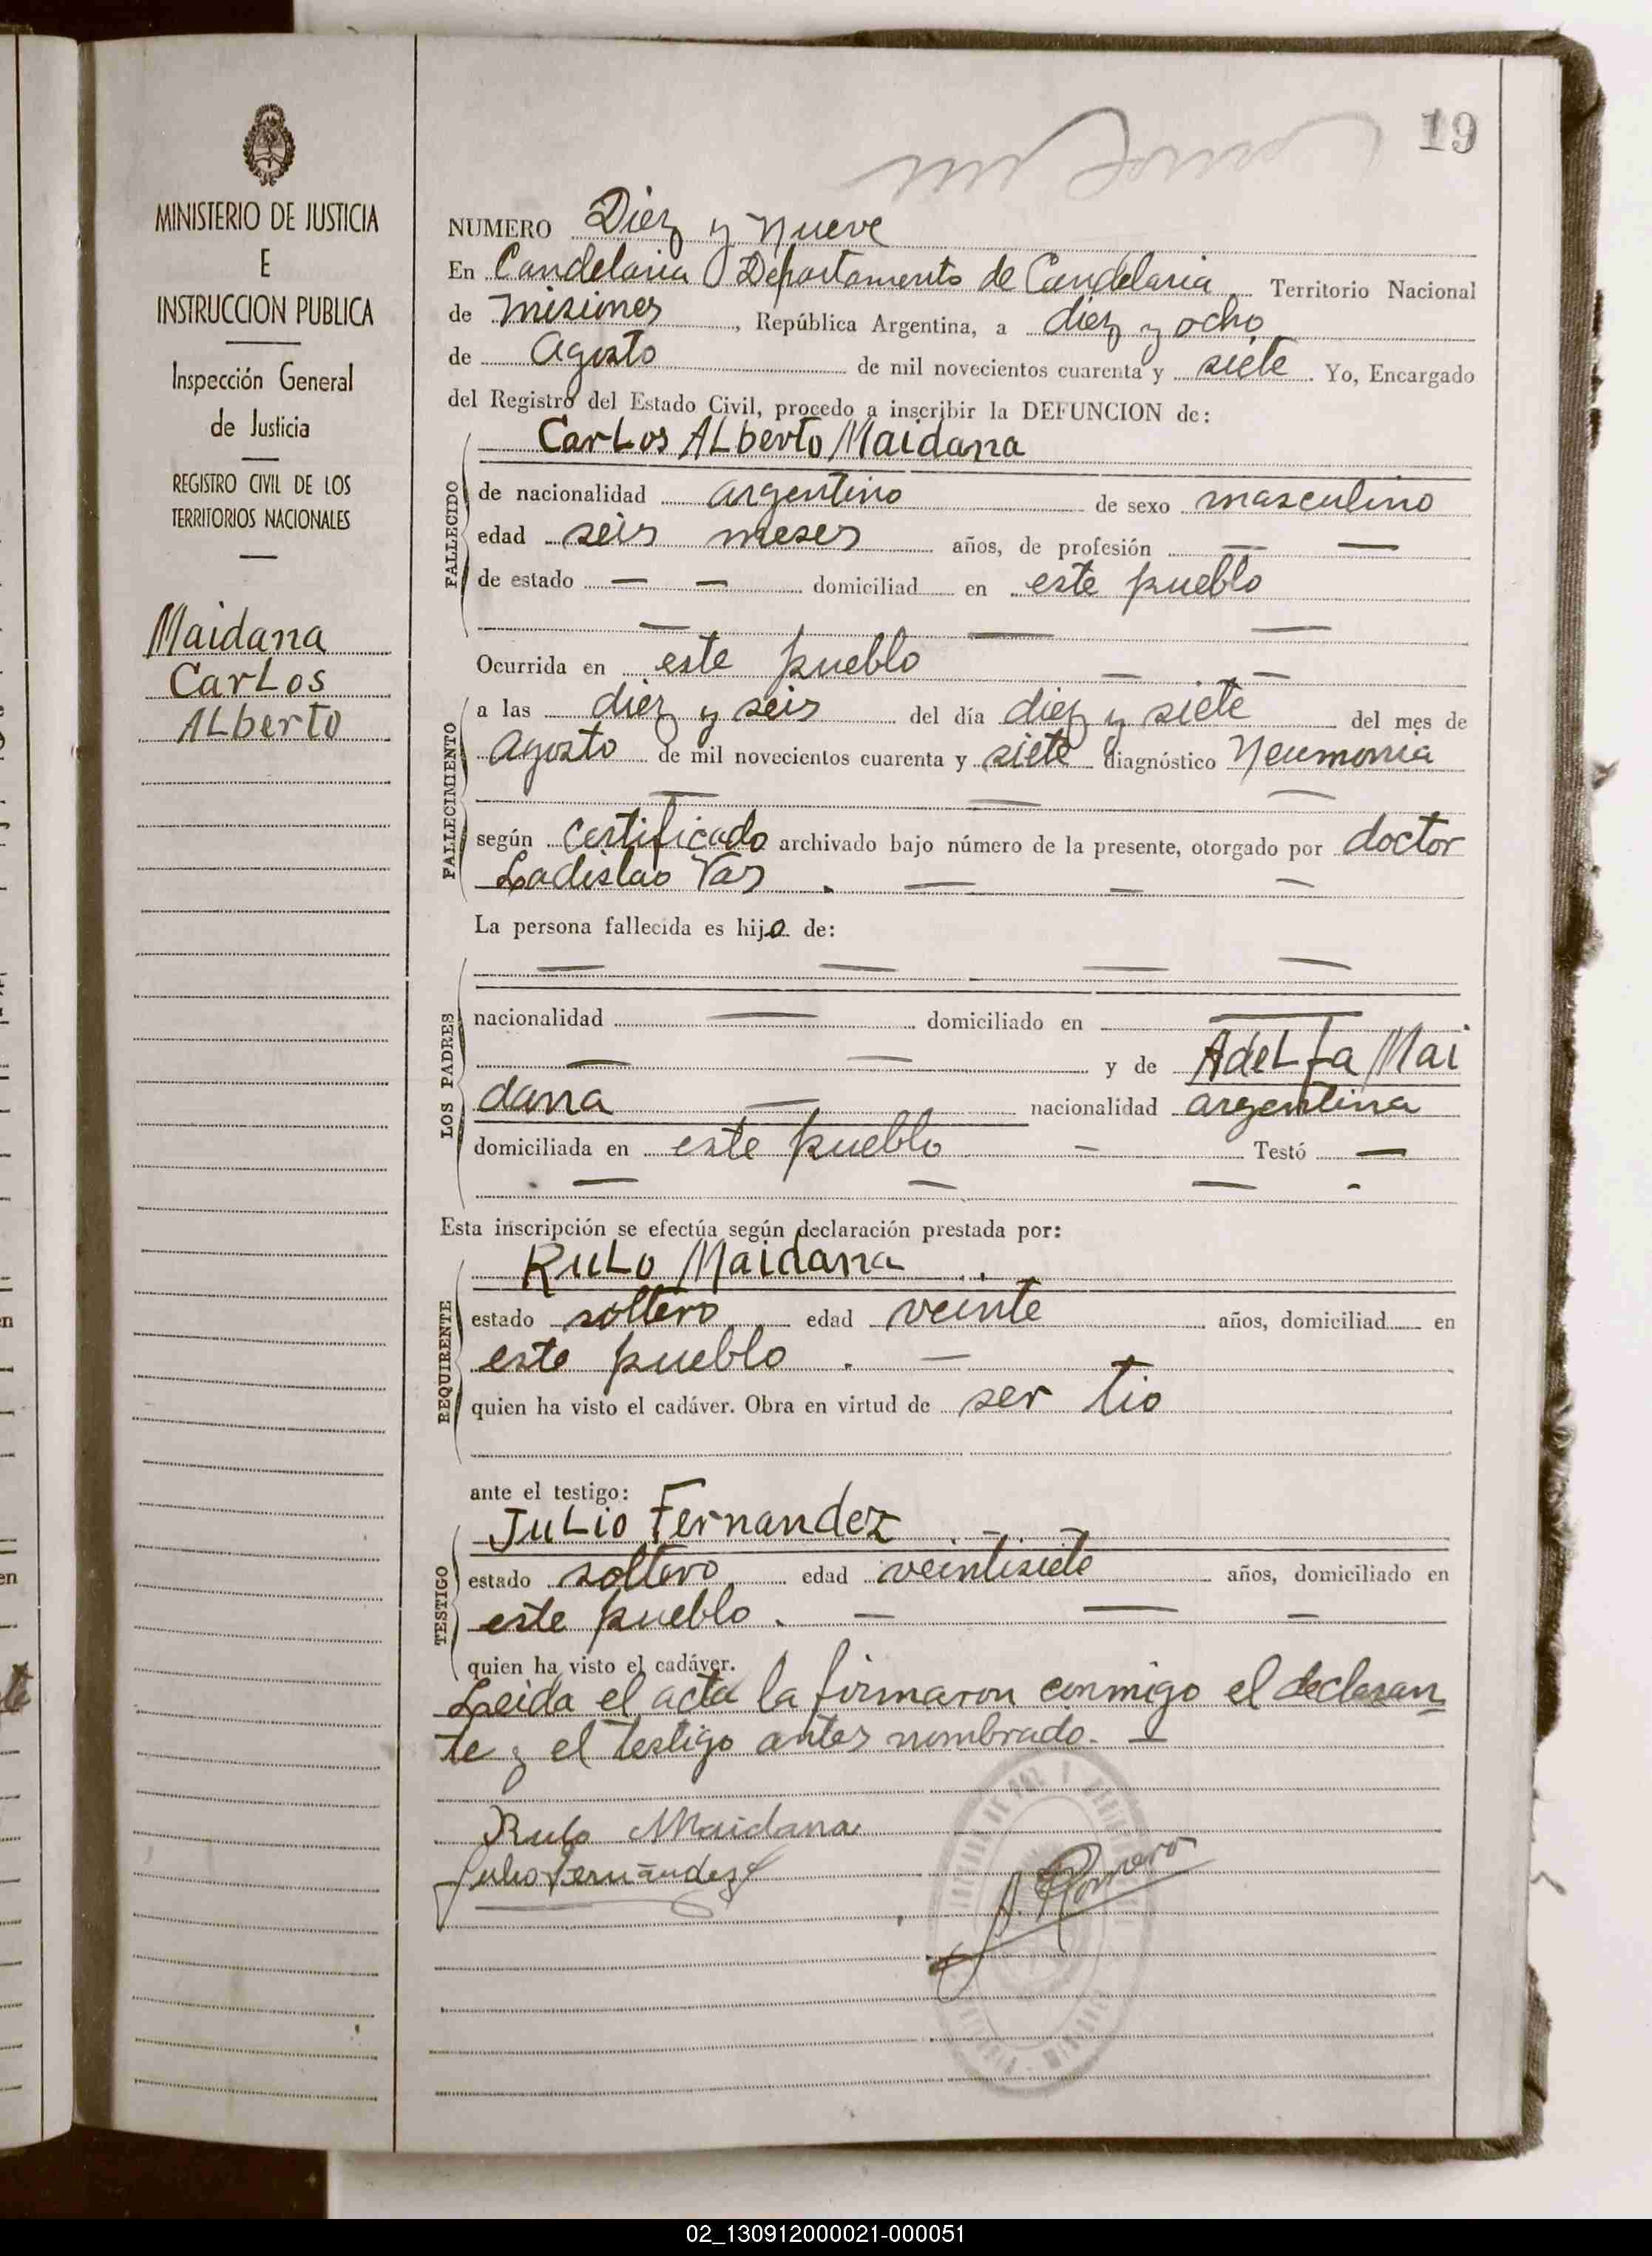 19
MINISTERIO DE JUSTICIA
E
INSTRUCCION PUBLICA
Inspección General
de Justicia
REGISTRO CIVIL DE LOS
TERRITORIOS NACIONALES
Maidana
Carlos
Alberto
NUMERO Diez y nueve
En Candelaria Departamento de Candelaria Territorio Nacional
de Misiones, República Argentina, a diez y ocho
de Agosto de mil novecientos cuarenta y siete. Yo, Encargado
del Registro del Estado Civil, procedo a inscribir la DEFUNCION de:
Carlos Alberto Maidana
FALLECIDO
de nacionalidad argentino de sexo masculino
edad seis meses años, de profesión — —
de estado — — domiciliad en este pueblo
— — —
Ocurrida en este pueblo — —
FALLECIMIENTO
a las diez y seis del día diez y siete del mes de
Agosto de mil novecientos cuarenta y siete diagnóstico Neumonia
— — —
según Certificado archivado bajo número de la presente, otorgado por doctor
Ladislao Vas . — — —
La persona fallecida es hijo de:
— — — —
LOS PADRES
nacionalidad — domiciliado en —
— — y de Adelfa Mai
dana — nacionalidad argentina
domiciliada en este pueblo — Testó —
— — — -
Esta inscripción se efectúa según declaración prestada por:
Rulo Maidana
REQUIRENTE
estado soltero edad veinte años, domiciliad en
este pueblo . —
quien ha visto el cadáver. Obra en virtud de ser tio
ante el testigo:
Julio Fernandez . — . —
TESTIGO
estado soltero edad veintisiete años, domiciliado en
este pueblo. — — —
quien ha visto el cadáver.
Leida el acta la firmaron conmigo el declaran
te y el testigo antes nombrado. —
Rulo Maidana
Julio Fernández
02_130912000021-000051